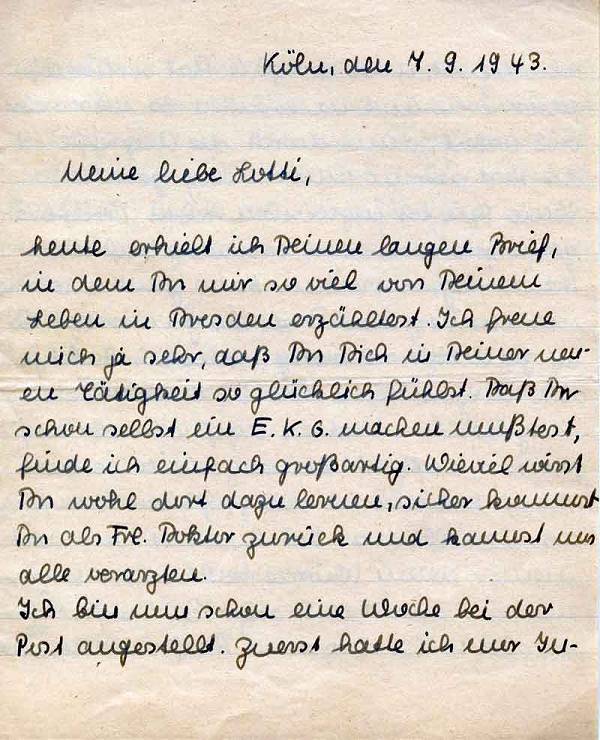 Köln, den 7. 9. 1943.
Meine liebe Lotti,
heute erhielt ich Deinen langen Brief,
in dem Du mir so viel von Deinem
Leben in Dresden erzähltest. Ich freue
mich ja sehr, daß Du Dich in Deiner neu-
en Tätigkeit so glücklich fühlst. Daß Du
schon selbst ein E. K. G. machen mußtest,
finde ich einfach großartig. Wieviel wirst
Du wohl dort dazu lernen, sicher kommst
Du als Frl. Doktor zurück und kannst uns
alle verarzten.
Ich bin nun schon eine Woche bei der
Post angestellt. Zuerst hatte ich nur In-